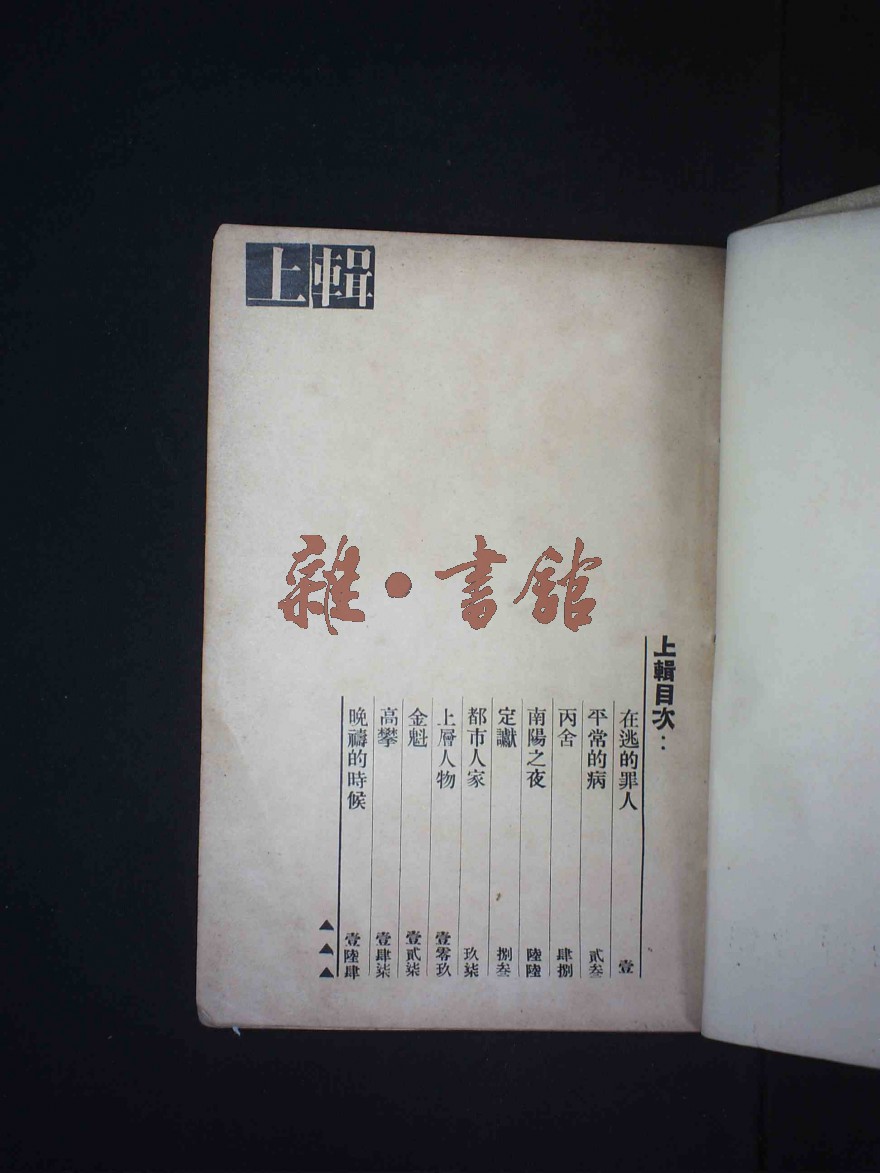 上輯
雜・書館
上輯目次：
在逃的罪人 壹
平常的病 貳叁
丙舍 肆捌
南陽之夜 陸陸
定讞 捌叁
都市人家 玖柒
上層人物 壹零玖
金魁 壹貳柒
高攀 壹肆柒
晚禱的時候 壹陸肆